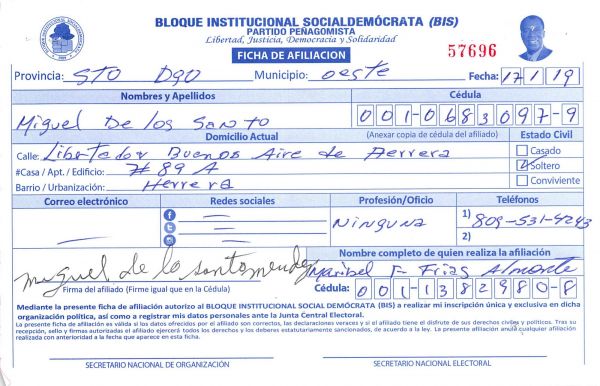 BLOQUE INSTITUCIONAL SOCIALDEMÓCRATA (BIS)
PARTIDO PEÑAGOMISTA
Libertad, Justicia, Democracia y Solidaridad
FICHA DE AFILIACION
57696
Provincia: STO DGO Municipio: oeste Fecha: 17/1/19
Nombres y Apellidos Cédula
Miguel De los Santo 001-0683097-9
Domicilio Actual (Anexar copia de cédula del afiliado) Estado Civil
Calle: Libertador Buenos Aire de Herrera Casado
#Casa / Apt. / Edificio: # 89 A Soltero
Barrio / Urbanización: Herrera Conviviente
Correo electrónico Redes sociales Profesión/Oficio Teléfonos
Ninguna 1) 809-531-4243
2)
Nombre completo de quien realiza la afiliación
miguel de lo santo mendez Maribel F Frias Almonte
Firma del afiliado (Firme igual que en la Cédula) Cédula: 001-1382980-8
Mediante la presente ficha de afiliación autorizo al BLOQUE INSTITUCIONAL SOCIAL DEMÓCRATA (BIS) a realizar mi inscripción única y exclusiva en dicha
organización política, así como a registrar mis datos personales ante la Junta Central Electoral.
La presente ficha de afiliación es válida si los datos ofrecidos por el afiliado son correctos, las declaraciones veraces y si el afiliado tiene el disfrute de sus derechos civiles y políticos. Tras su
recepción, sello y firmas autorizadas el afiliado ejercerá todos los derechos y los deberes estatutariamente sancionados, de acuerdo a la ley. La presente afiliación anula cualquier afiliación
realizada con anterioridad a la fecha que aparece en esta ficha.
SECRETARIO NACIONAL DE ORGANIZACIÓN SECRETARIO NACIONAL ELECTORAL